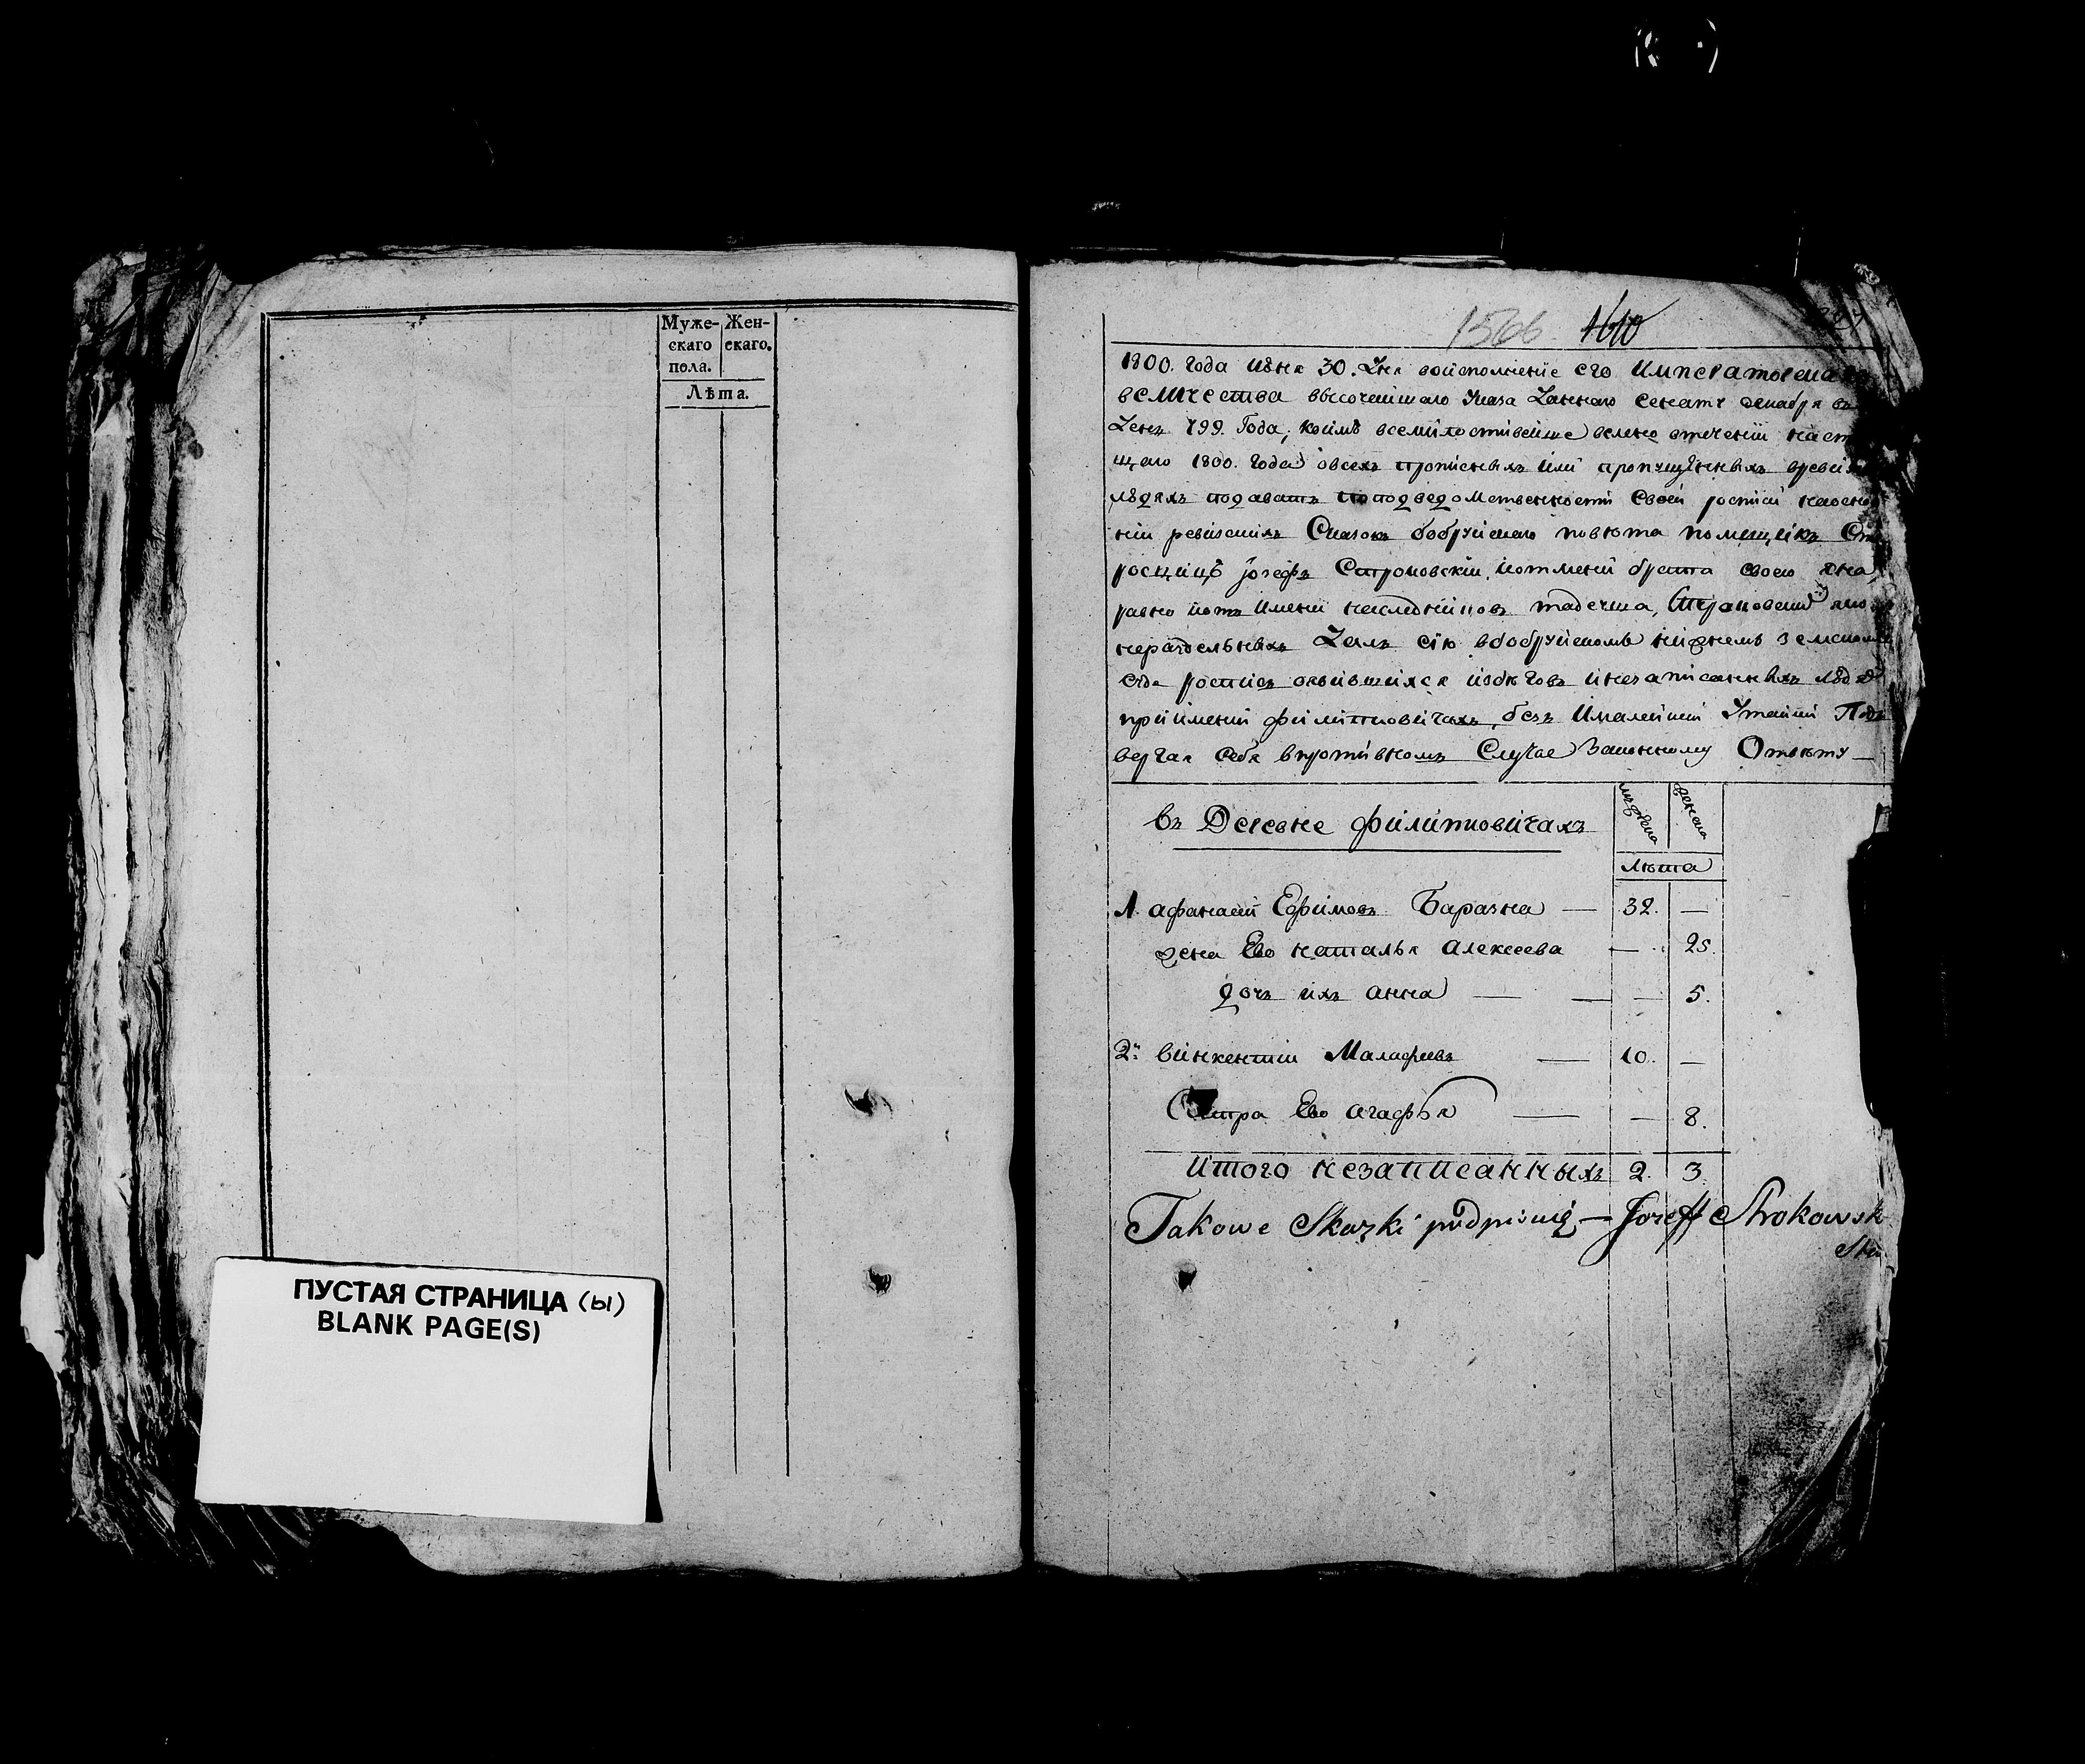 Муже- Жен-
скаго скаго.
пола.
Лѣта.
ПУСТАЯ СТРАНИЦА (ы)
BLANK PAGE(S)
1566 1610
1800. Года июня 30. Дня воисполнение его Императорска
величества высочаишаго Указа Даннаго сенату декабря въ
День 799. Года, коимъ всемилостивейше велено втечении наст
щаго 1800. года овсехъ прописныхъ или пропущенныхъ вреви
людяхъ подавать поподведомственности своей росписи наосно
нии ревизскихъ Сказокъ бобруйскаго повѣта помещикъ Ст
росцицъ Iозефъ Строковский, иотимени брата своего яна,
равно иотъ имени наследниковъ тадеуша, яко
нераздельныхъ Далъ сию вбобруйскомъ нижнемъ земском
суде роспись оявившихся избеговъ инезаписанныхъ люд
приимении филиповичахъ, безъ ималейшей Утайки Под
вергая себя впротивномъ Случае Законному Ответу —
въ Деревне филиповичахъ
мужска женска
лѣта
1 афанасий Ефимовъ Баразна — 32. —
жена Ево наталья алексеева — 25.
дочь ихъ анна — — — 5.
2й винкентий Малафеевъ — 10. —
Сестра Ево агафья — — 8.
итого незаписанныхъ 2. 3
Takowe Skazki podpisuię — Jozeff Strokowsk